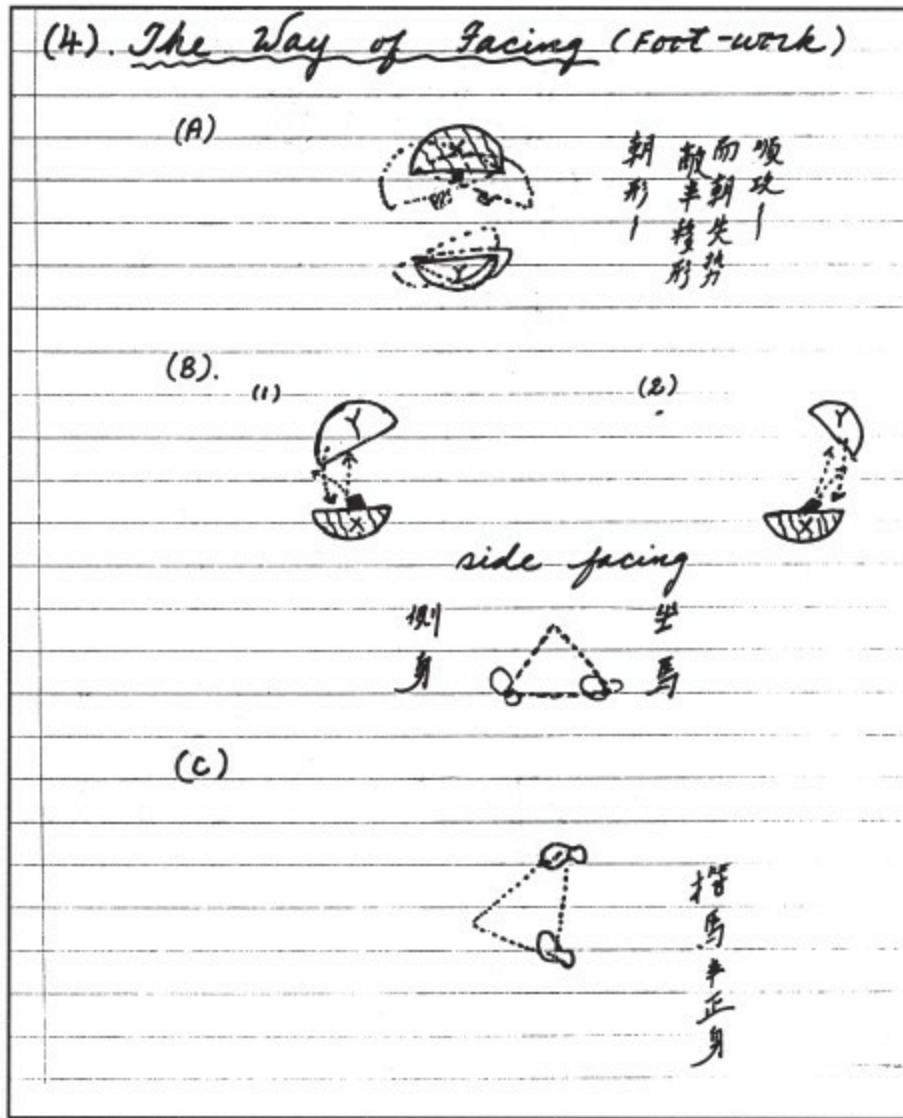 (4). The Way of Facing (Foot-work)
(A)
X
Y
順攻
而朝失勢
敵率轉形
朝形
(B).
(1)
(2)
Y
X
Y
X
side facing
側身
坐馬
(C)
馬半正身